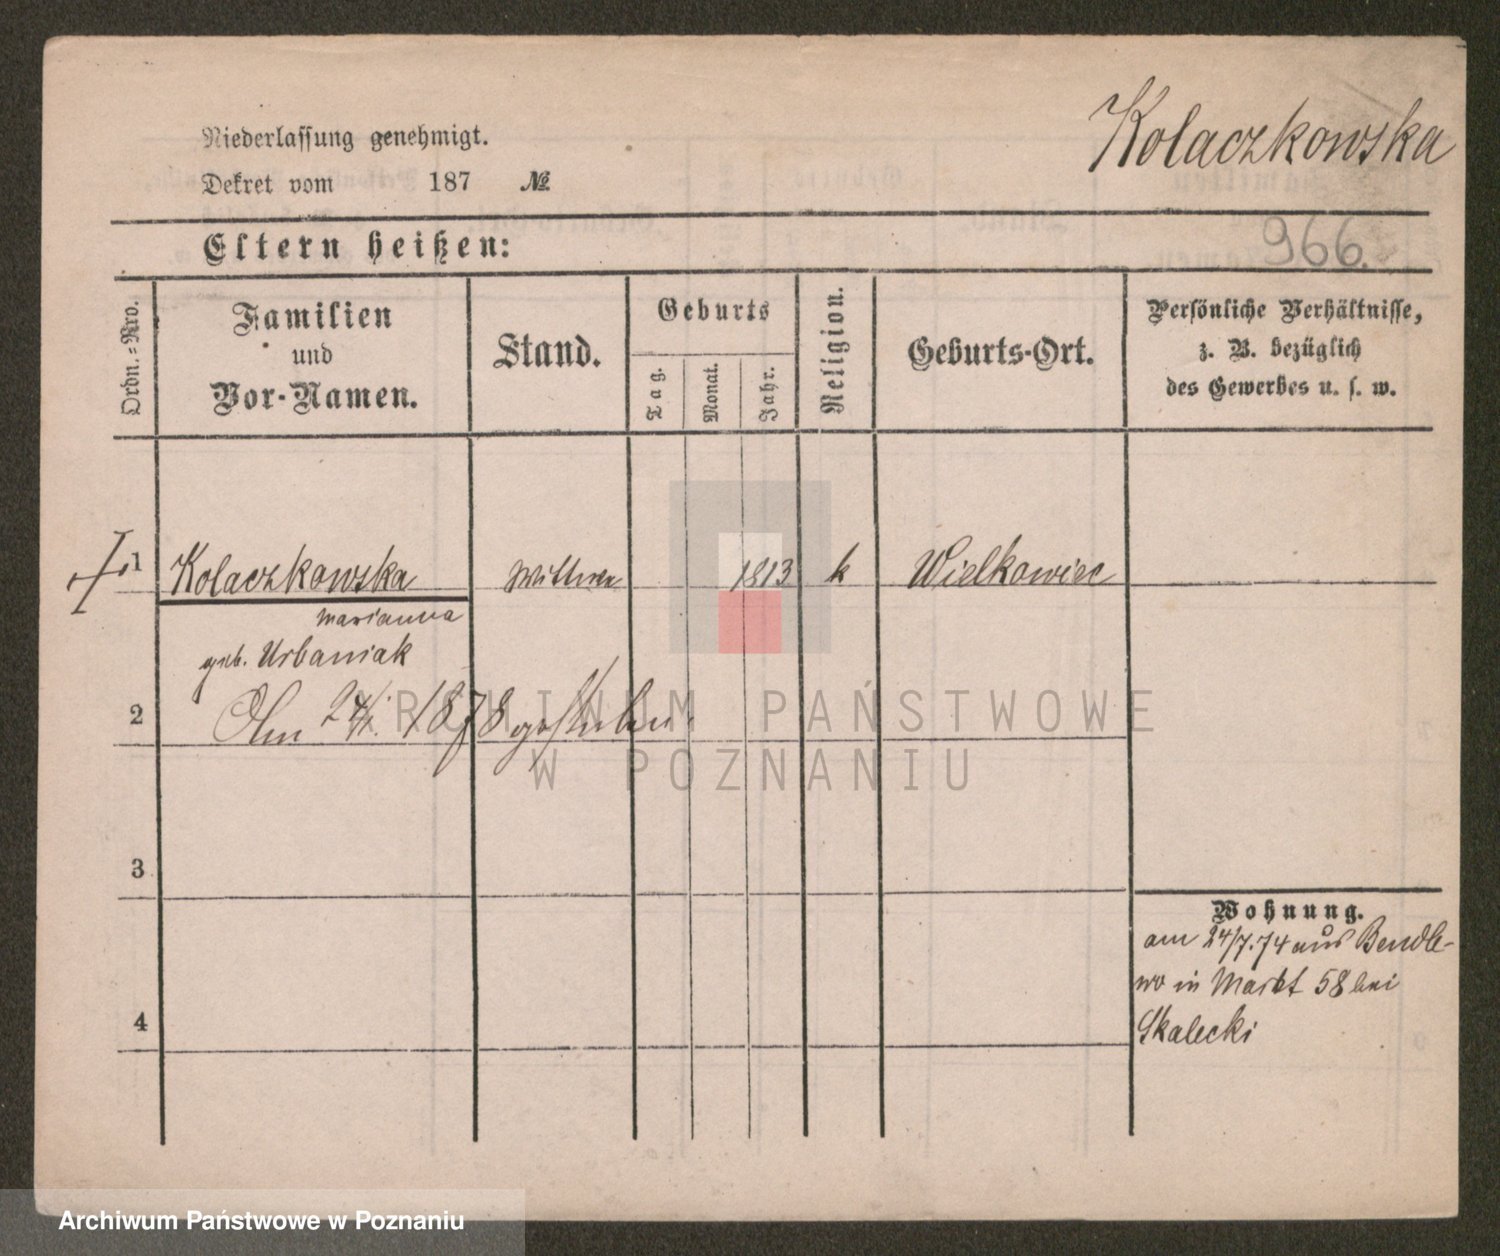 Kolaczkowska
Niederlassung genehmigt.
Dekret vom 187 №
966.
Eltern heißen:
Ordn.-Nro.
Familien
und
Vor-Namen.
Stand.
Geburts
Tag.
Monat.
Jahr.
Religion.
Geburts-Ort.
Persönliche Verhältnisse,
z. B. bezüglich
des Gewerbes u. s. w.
1 Kolaczkowska Wittwe 1813 k Wielkowiec
Marianna
geb. Urbaniak
2 Am 24/1. 1878 gestorben.
3
4
Wohnung.
am 24/7.74 aus Bendle-
wo in Markt 58 bei
Skalecki
ARCHIWUM PAŃSTWOWE
W POZNANIU
Archiwum Państwowe w Poznaniu